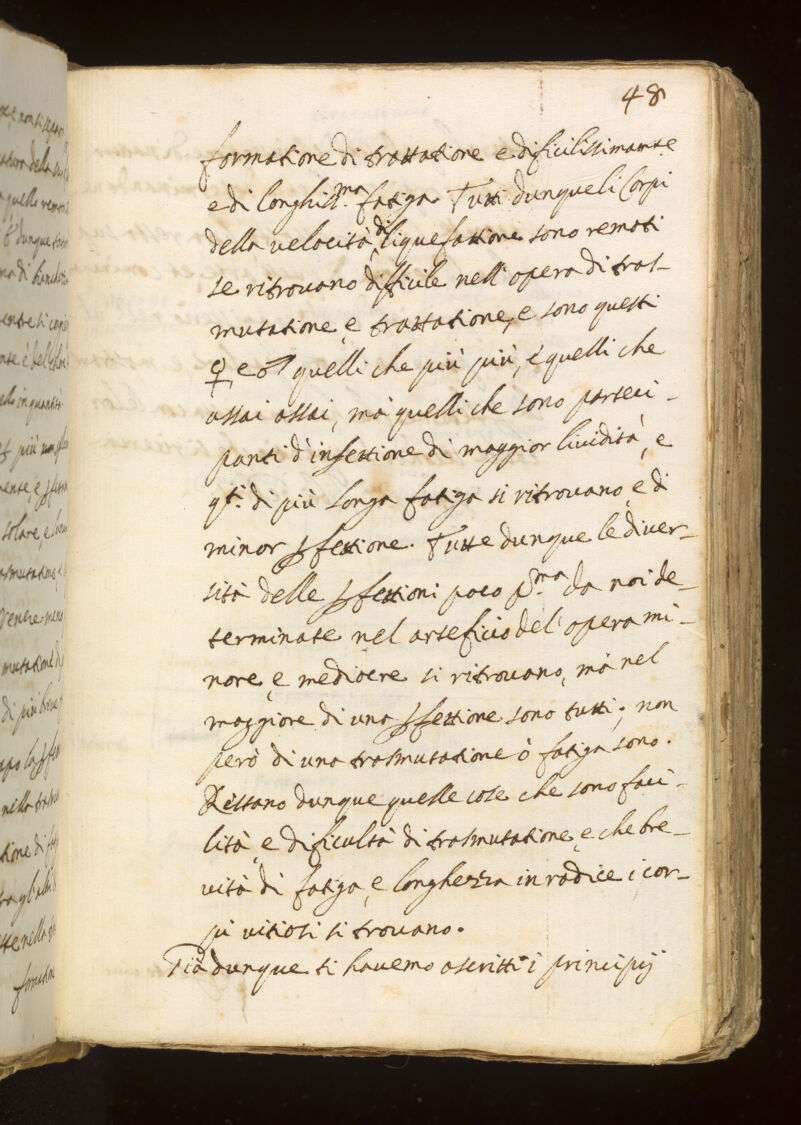 48
formatione di trattatione e dificilissimamte
e di longhiss.ma fatiga. Tutti dunque li Corpi
della velocità di liquefattione sono remoti
se ritrouano difficile nell' opera di tras-
mutatione, e trattatione, e sono questi
♀, e ♂ quelli che più più, e quelli che
assai assai, mà quelli che sono parteci-
panti d'infettione di maggior liuidità, e
q.ti di più longa fatiga si ritrouano, e di
minor ꝑfettione. Tutte dunque le diuer-
sità delle ꝑfettioni poco p.ma da noi de-
terminate nel arteficio del' opera mi-
nore, e mediocre si ritrouano, mà nel
maggiore di una ꝑfettione sono tutti; non
però di una trasmutatione ò fatiga sono.
Restano dunque quelle cose che sono faci-
lità, e dificultà di trasmutatione, e che bre-
uità di fatiga, e longhezza in radice i cor-
pi vitiosi si trouano.
Già dunque ti hauemo ascritti i principij